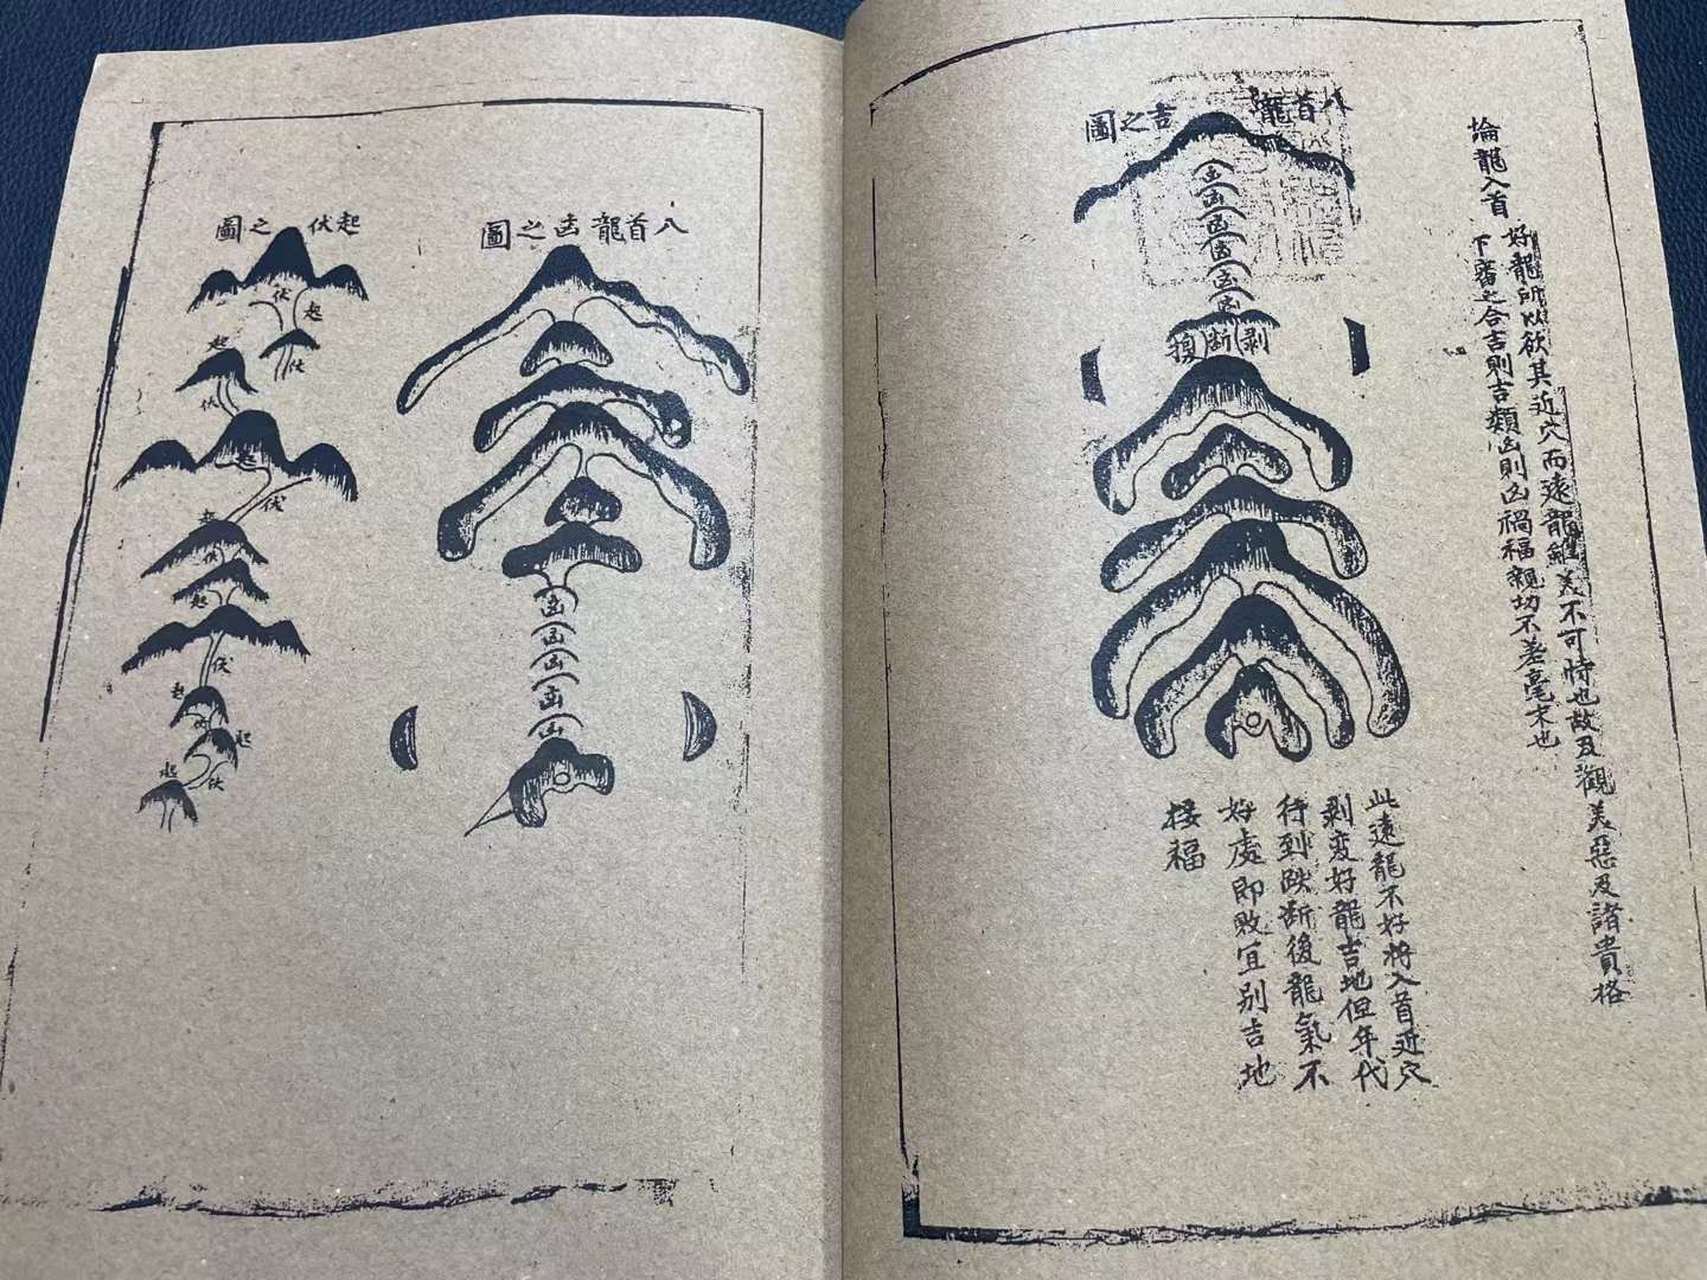 論龍入首
好龍所以欲其近穴而遠龍雖美不可恃也故及觀美惡及諸貴格
下審之合吉則吉類凶則凶禍福親切不差毫末也
入首龍吉之圖
凶
凶
凶
凶
凶
凶
剥断
此遠龍不好將入首近穴
剥変好龍吉地但年代
行到跌断後龍氣不
好處即敗宜别吉地
接福
入首龍凶之圖
凶
凶
凶
凶
凶
起伏之圖
伏
起
起
伏
伏
起
伏
起
伏
起
伏
起
起
伏
起